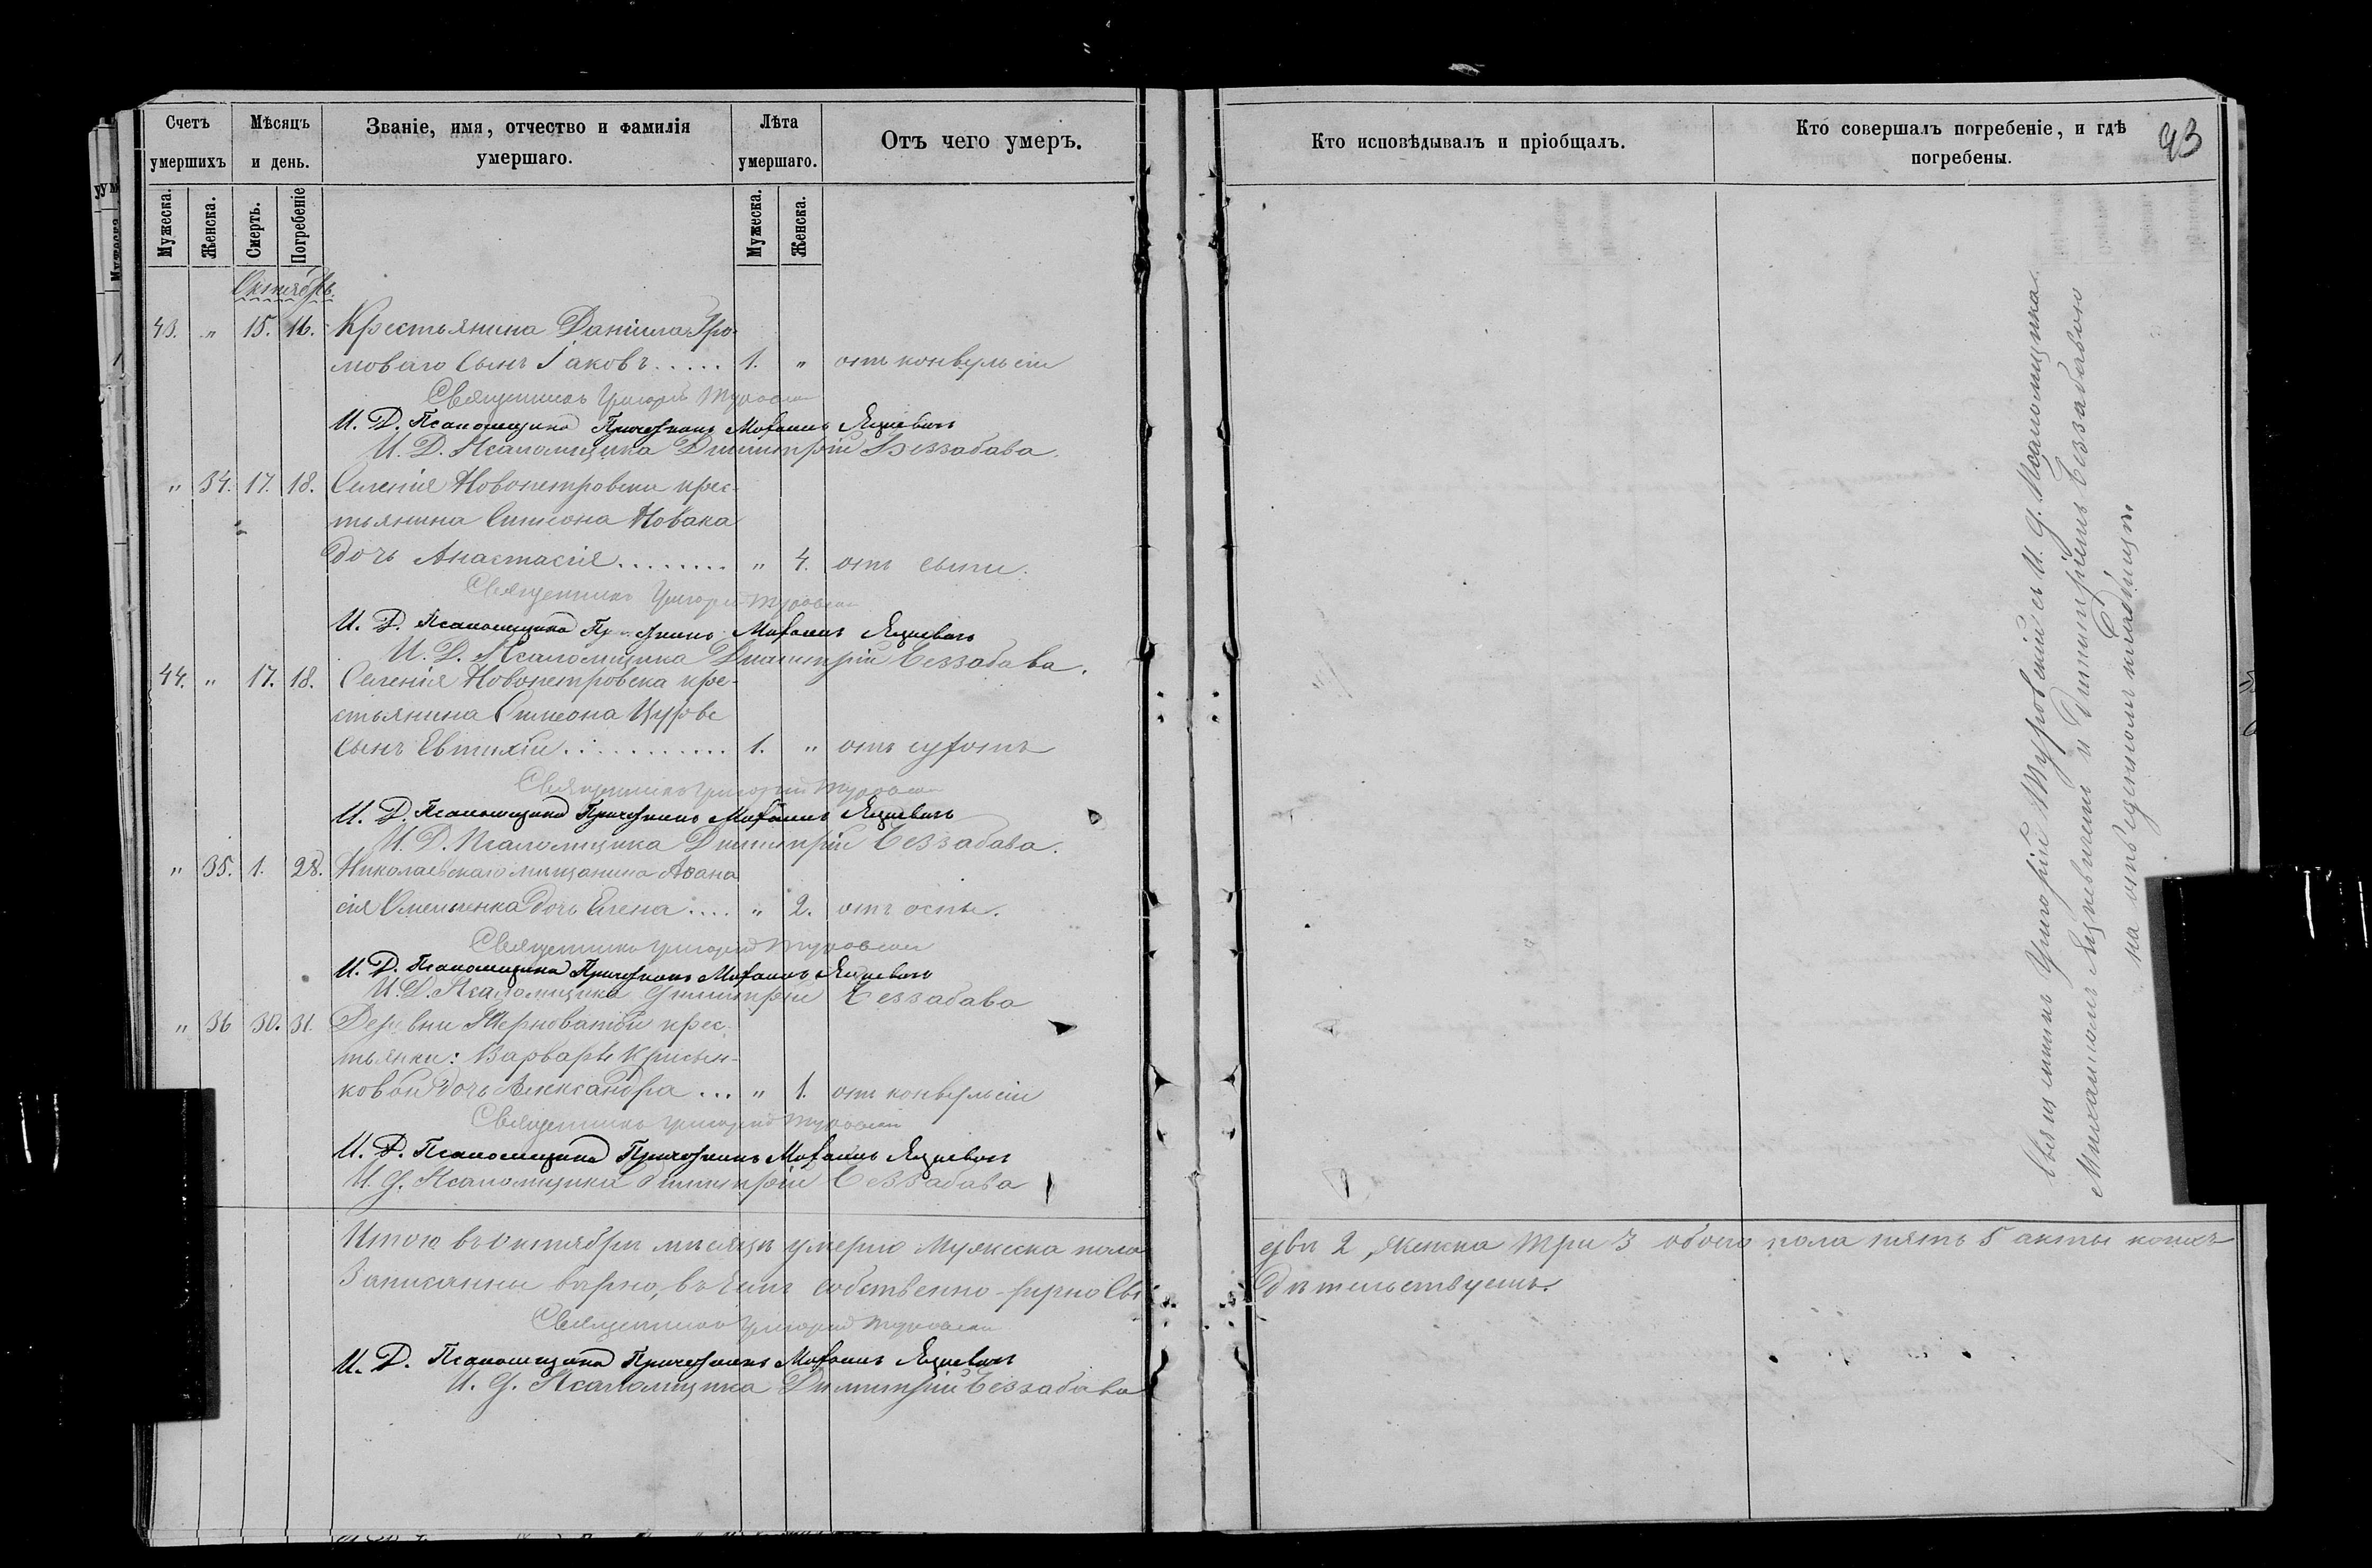 Счетъ умершихъ
Мѣсяцъ и день.
Званіе, имя, отчество и фамилія умершаго.
Лѣта умершаго.
Отъ чего умеръ.
Кто исповѣдывалъ и пріобщалъ.
Кто совершалъ погребеніе, и гдѣ погребены.
93
Мужеска. Женска. Смерть. Погребеніе Мужеска. Женска.
Октябрь.
43. " 15. 16. Крестьянина Даніила Гро-
моваго сынъ Іаковъ..... 1. " отъ конвульсіи
Священникъ Григорій Туровскій
И. Д. Псаломщика Причетникъ Михаилъ Яцкевичъ
И. Д. Псаломщика Димитрій Беззабава.
" 34. 17. 18. Селенія Новопетровски крес-
тьянина Симеона Новака
дочь Анастасія........ " 4. отъ сыпи.
Священникъ Григорій Туровскій
И. Д. Псаломщика Причетникъ Михаилъ Яцкевичъ
И. Д. Псаломщика Димитрій Беззабава.
44. " 17. 18. Селенія Новопетровска кре-
стьянина Симеона
сынъ Евтихій............ 1. " отъ сухотъ
Священникъ Григорій Туровскій
И. Д. Псаломщика Причетникъ Михаилъ Яцкевичъ
И. Д. Псаломщика Димитрій Беззабава.
" 35. 1. 28. Николаевскаго мѣщанина Аѳана
сія Омельченка дочь Елена.... " 2. отъ оспы.
Священникъ Григорій Туровскій
И. Д. Псаломщика Причетникъ Михаилъ Яцкевичъ
И. Д. Псаломщика Димитрій Беззабава
" 36 30. 31. Деревни Терноватой крес-
тьянки: Варвары
ковой дочь Александра... " 1. отъ конвульсіи
Священникъ Григорій Туровскій
И. Д. Псаломщика Причетникъ Михаилъ Яцкевичъ
И. д. Псаломщика Димитрій Беззабава
Итого въ Октябрѣ мѣсяцѣ умерло Мужеска пола два 2, Женска три 3 обоего пола пять 5 акты коихъ
Записанны вѣрно, въ чемъ собственно-ручно Сви дѣтельствуемъ.
Священникъ Григорій Туровскій
И. Д. Псаломщика Причетникъ Михаилъ Яцкевичъ
И. д. Псаломщика Димитрій Беззабава
Священникъ Григорій Туровскій съ И. д. Псаломщика
Михаиломъ Яцкевичемъ и Димитріемъ Беззабавою
на отведенномъ кладбищѣ.